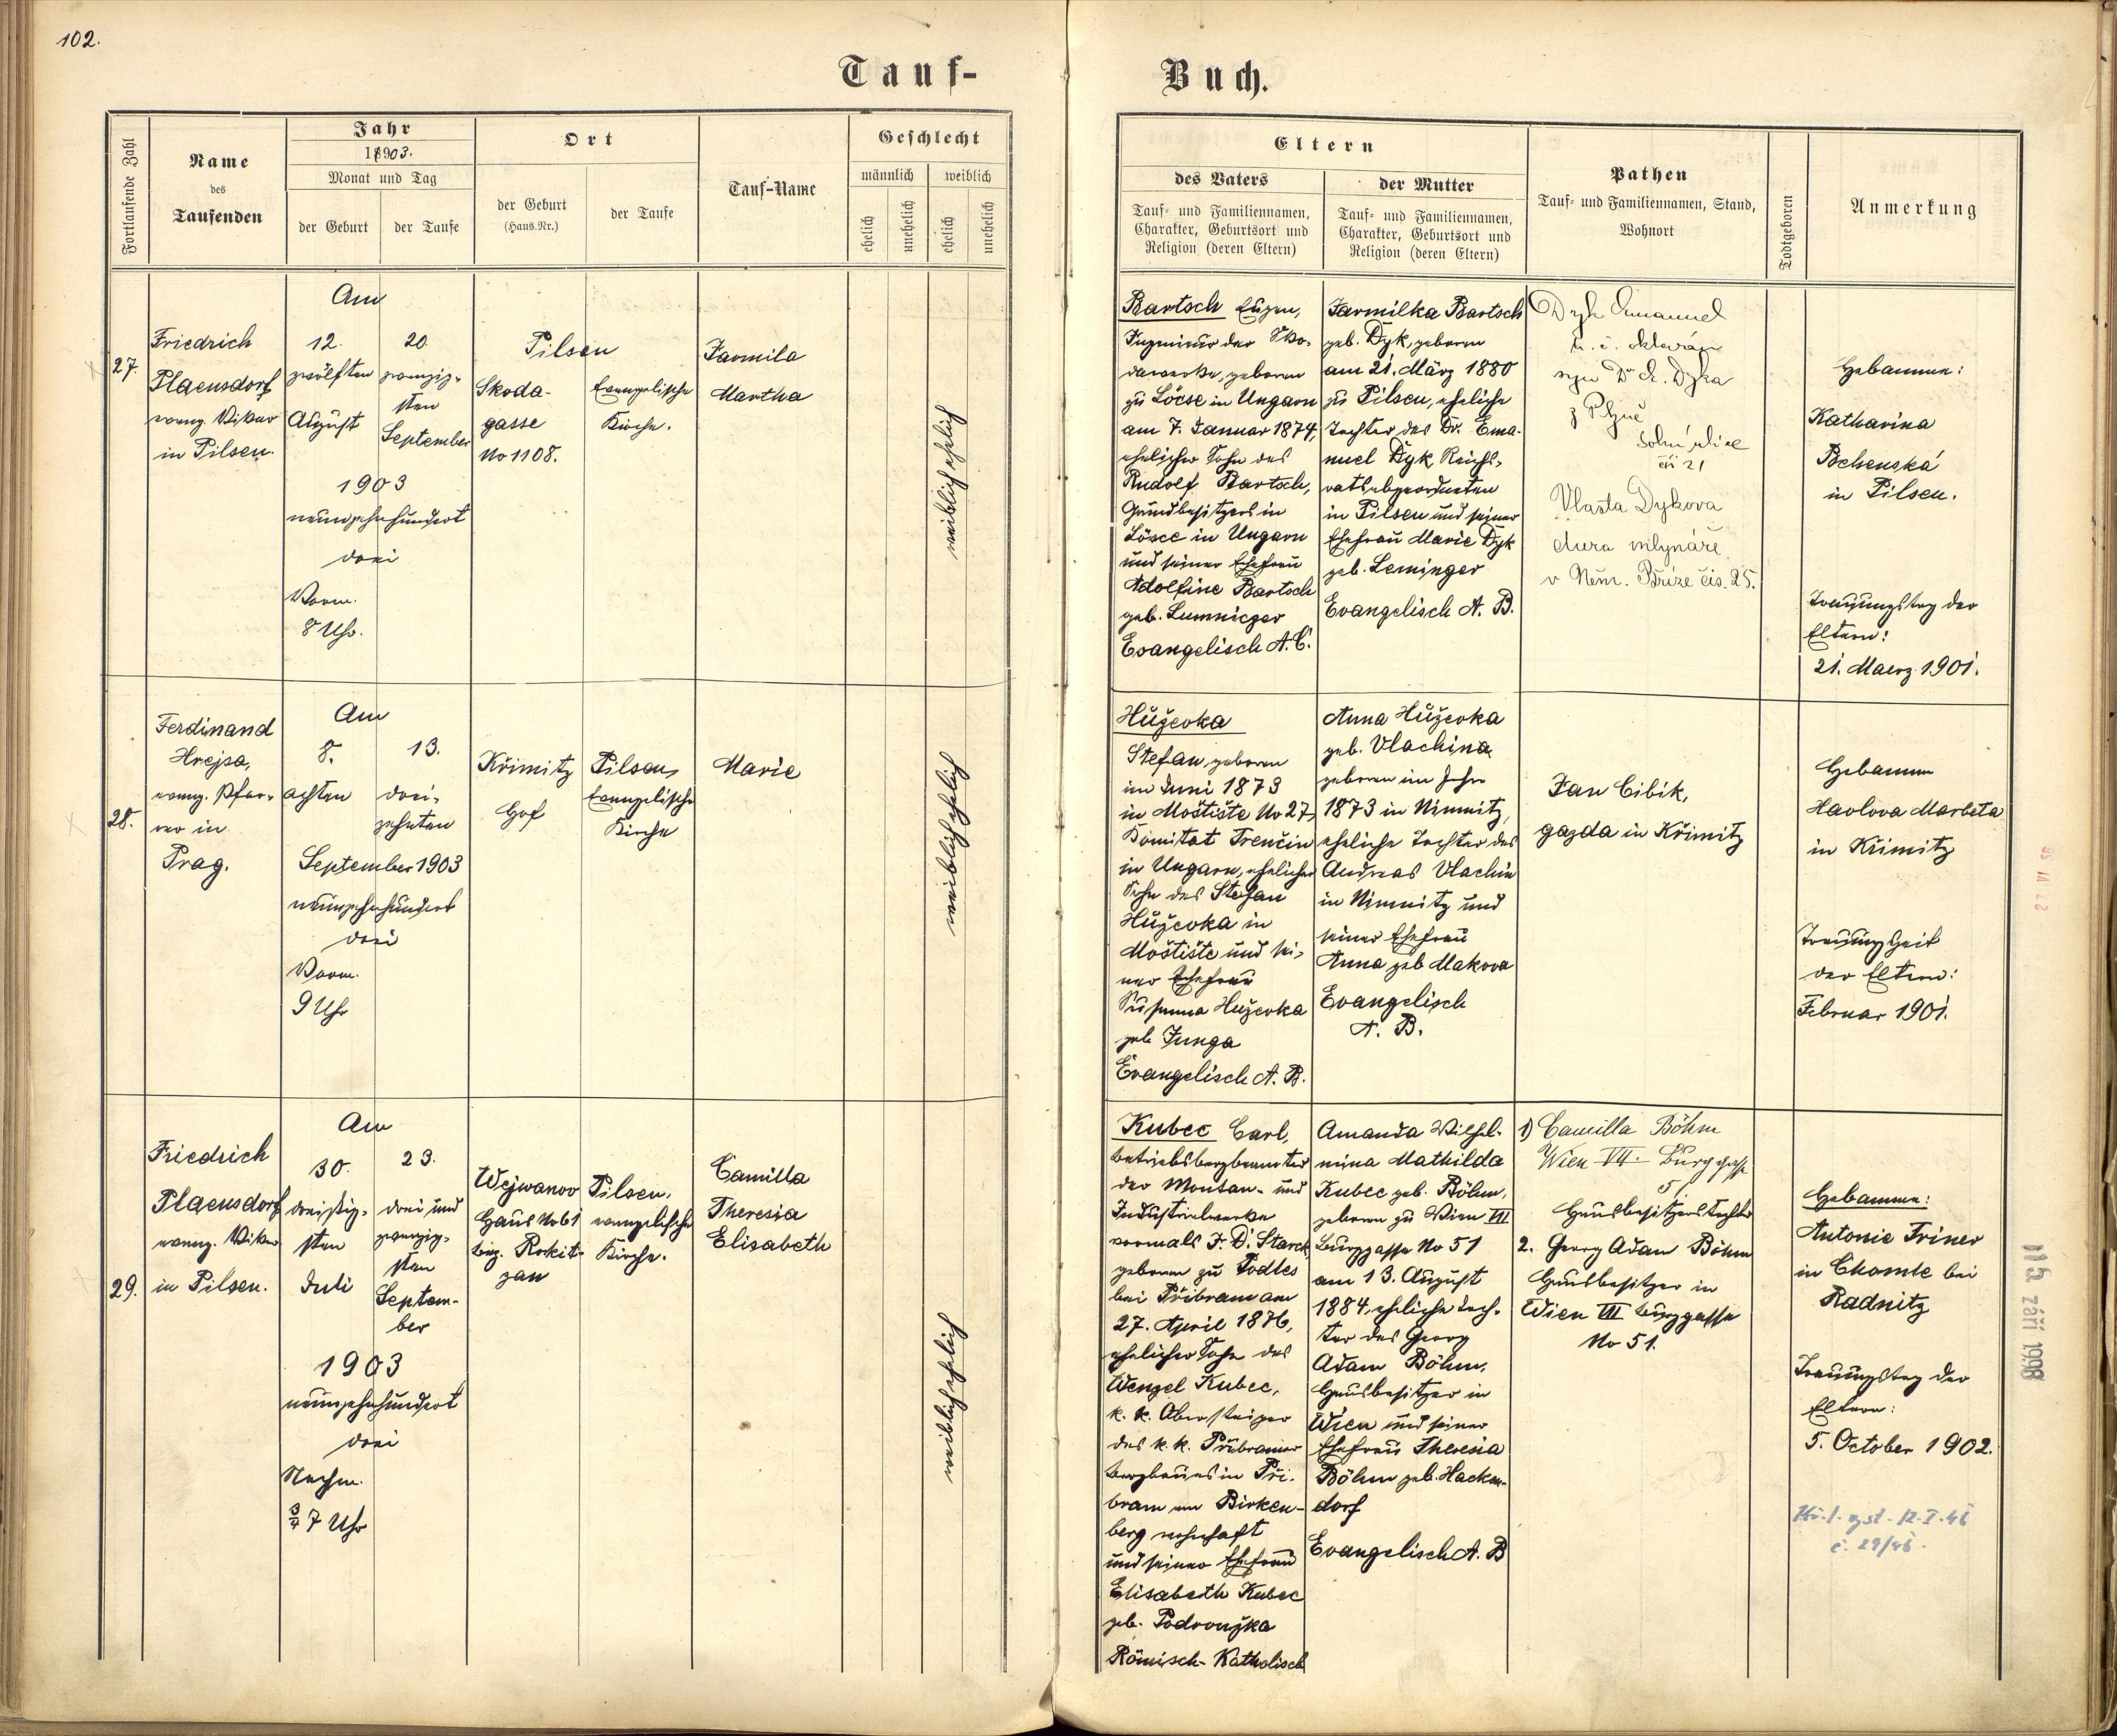 102.
Tauf-
Buch.
Fortlaufende Zahl
Name
des
Taufenden
Jahr
1903.
Monat und Tag
der Geburt
der Taufe
Ort
der Geburt
(Haus-Nr.)
der Taufe
Tauf-Name
Geschlecht
männlich
weiblich
ehelich
unehelich
ehelich
unehelich
Eltern
des Vaters
Tauf- und Familiennamen,
Charakter, Geburtsort und
Religion (deren Eltern)
der Mutter
Tauf- und Familiennamen,
Charakter, Geburtsort und
Religion (deren Eltern)
Pathen
Tauf- und Familiennamen, Stand,
Wohnort
Todtgeboren
Anmerkung
27.
Friedrich
Plaensdorf
evang. Vikar
in Pilsen.
Am
12.
zwölften
August
20
zwanzig-
sten
September
1903
neunzehnhundert
drei
Vorm.
8 Uhr.
Pilsen
Skoda-
gasse
No 1108.
Evangelische
Kirche.
Jarmila
Martha
weiblich ehelich
Bartsch Eugen,
Ingenieur der Sko-
dawerke, geboren
zu Löcse in Ungarn
am 7. Januar 1874,
ehelicher Sohn des
Rudolf Bartsch,
Grundbesitzers in
Lösce in Ungarn
und seiner Ehefrau
Adolfine Bartsch
geb. Lumniczer
Evangelisch A. C.
Jarmilka Bartsch
geb. Dyk, geboren
am 21. März 1880
zu Pilsen, eheliche
Tochter des Dr. Ema-
nuel Dyk, Reichs-
ratsabgeordneten
in Pilsen und seiner
Ehefrau Marie Dyk
geb. Leminger
Evangelisch A. B.
Dyk Emanuel
oktaván
syn Dr. E. Dyka
z Plzně
čís 21
Vlasta Dykova
dcera mlynáře
v Něm. Bříze čís. 25.
Hebamme:
Katharina
in Pilsen.
Trauungstag der
Eltern:
21. Maerz 1901.
28.
Ferdinand
Hrejsa,
evang. Pfar-
rer in
Prag.
Am
8.
achten
13.
drei-
zehnten
September 1903
neunzehnhundert
drei
Vorm.
9 Uhr
Křimitz
Hof
Pilsen,
Evangelische
Kirche
Marie
weiblich ehelich
Hůževka
Stefan, geboren
im Juni 1873
in Moštište No 27,
Komitat Trenčin
in Ungarn, ehelicher
Sohn des Stefan
Hůževka in
Moštište und sei-
ner Ehefrau
Susanna Huževka
geb. Junga
Evangelisch A. B.
Anna Hůževka
geb. Vlachina
geboren im Jahre
1873 in Nimnitz,
eheliche Tochter des
Andreas Vlachin
in Nimnitz und
seiner Ehefrau
Anna geb Makova
Evangelisch
A. B.
Jan Cibik,
gazda in Křimitz
Hebamme
Havlova Marketa
in Křimitz
Trauungszeit
der Eltern:
Februar 1901.
29.
Friedrich
Plaensdorf
evang. Vikar
in Pilsen.
Am
30.
dreißig-
sten
Juli
23.
drei und
zwanzig-
sten
Septem-
ber
1903
neunzehnhundert
drei
Nachm.
¾ 7 Uhr
Wejwanov
Haus No 61
Bez. Rokit-
zan
Pilsen,
evangelische
Kirche.
Camilla
Theresia
Elisabeth
weiblich ehelich
Kubec Carl,
Betriebsbergbeamter
der Montan- und
Industrialwerke
vormals J. D. Starck,
geboren zu Podles
bei Přibram am
27. April 1876,
ehelicher Sohn des
Wenzel Kubec,
k. k. Obersteiger
des k. k. Přibramer
Bergbaues in Při-
bram am Birken-
berg wohnhaft
und seiner Ehefrau
Elisabeth Kubec
geb. Podroužka
Römisch-Katholisch
Amanda Wilhel-
mina Mathilda
Kubec geb. Böhm,
geboren zu Wien VII
Burggasse No 51
am 13. August
1884, eheliche Toch-
ter des Georg
Adam Böhm,
Hausbesitzer in
Wien und seiner
Ehefrau Theresia
Böhm geb. Hacken-
dorf
Evangelisch A. B
1) Camilla Böhm
Wien VII. Burggasse
51
Hausbesitzerstochter
2. Georg Adam Böhm
Hausbesitzer in
Wien VII Burggasse
No 51.
Hebamme:
Antonie Triner
in Chomle bei
Radnitz
Trauungstag der
Eltern:
5. October 1902.
č. 29/46.
27 VI 56
15. září 1998